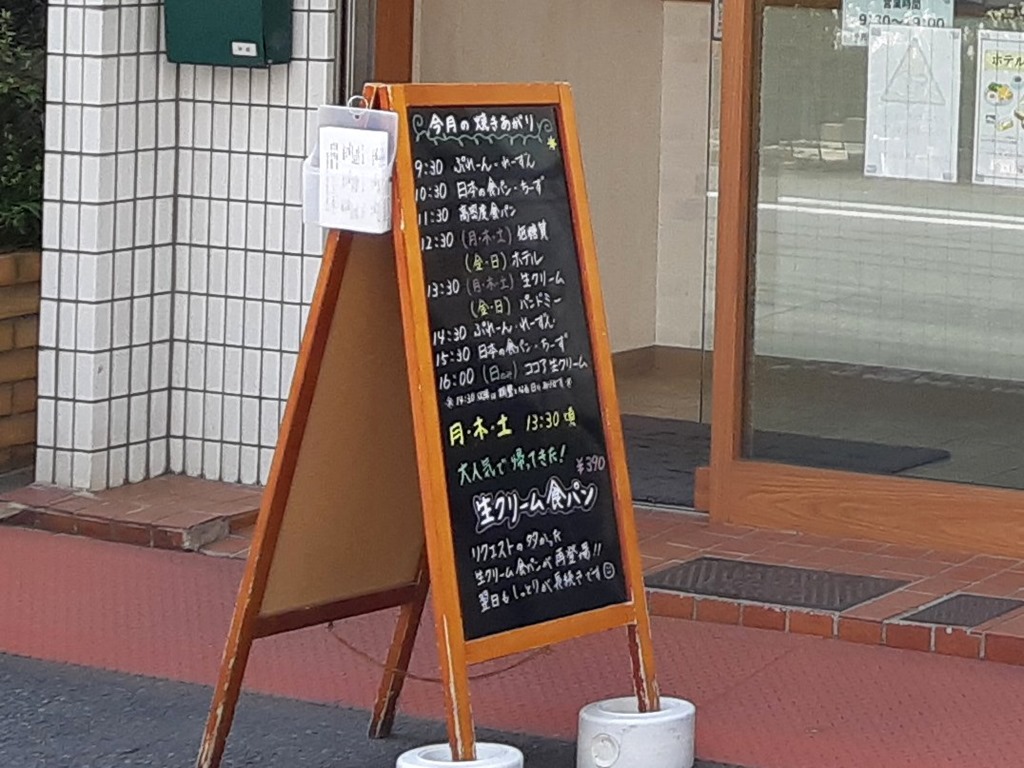 今月の焼きあがり
9:30 ぷれーん・れーずん
10:30 日本の食パン・ちーず
11:30 高密度食パン
12:30 (月・木・土) 低糖質
(金・日) ホテル
13:30 (月・木・土) 生クリーム
(金・日) パンドミー
14:30 ぷれーん・れーずん
15:30 日本の食パン・ちーず
16:00 (日のみ) ココア生クリーム
※14:30以降は調整する日もあります※
月・木・土 13:30頃
大人気で帰ってきた!
¥390
生クリーム食パン
リクエストの多かった
生クリーム食パンが再登場!!
翌日もしっとりが長続きです
営業時間
9:30〜19:00
ホテル